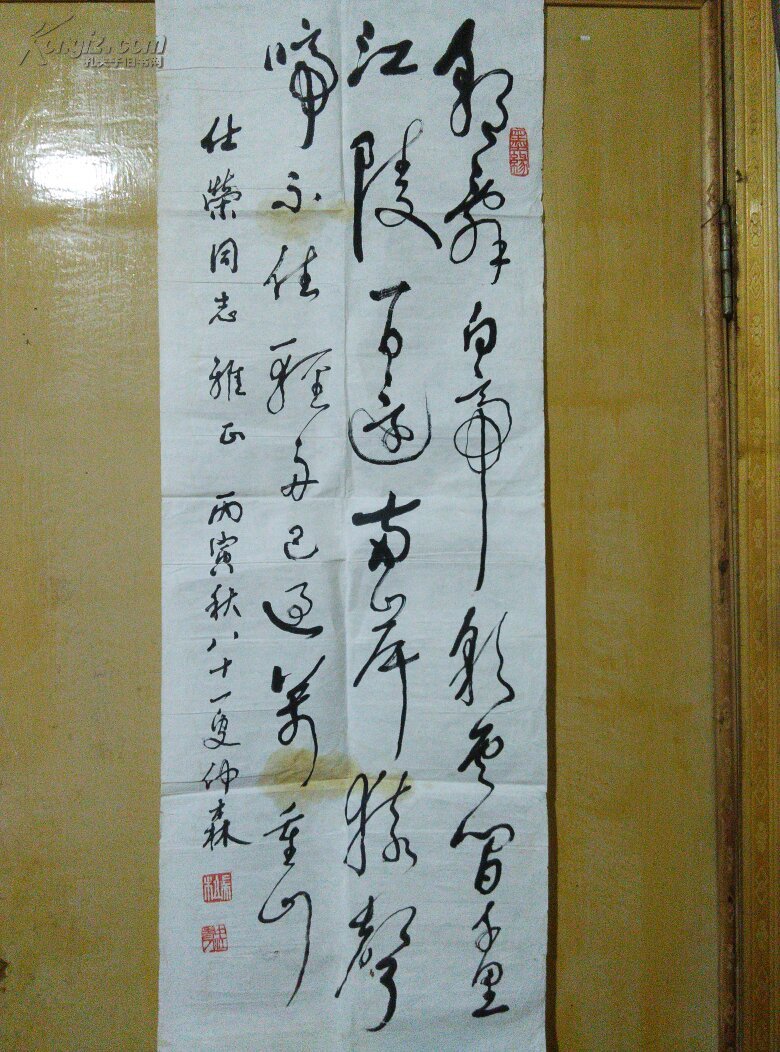 朝辭白帝彩雲間千里
江陵一日還兩岸猿聲
啼不住輕舟已過萬重山
仕榮同志雅正 丙寅秋八十一叟仲森
Kongfz.com
孔夫子旧书网